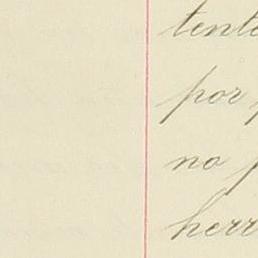 tent
por
no
herr